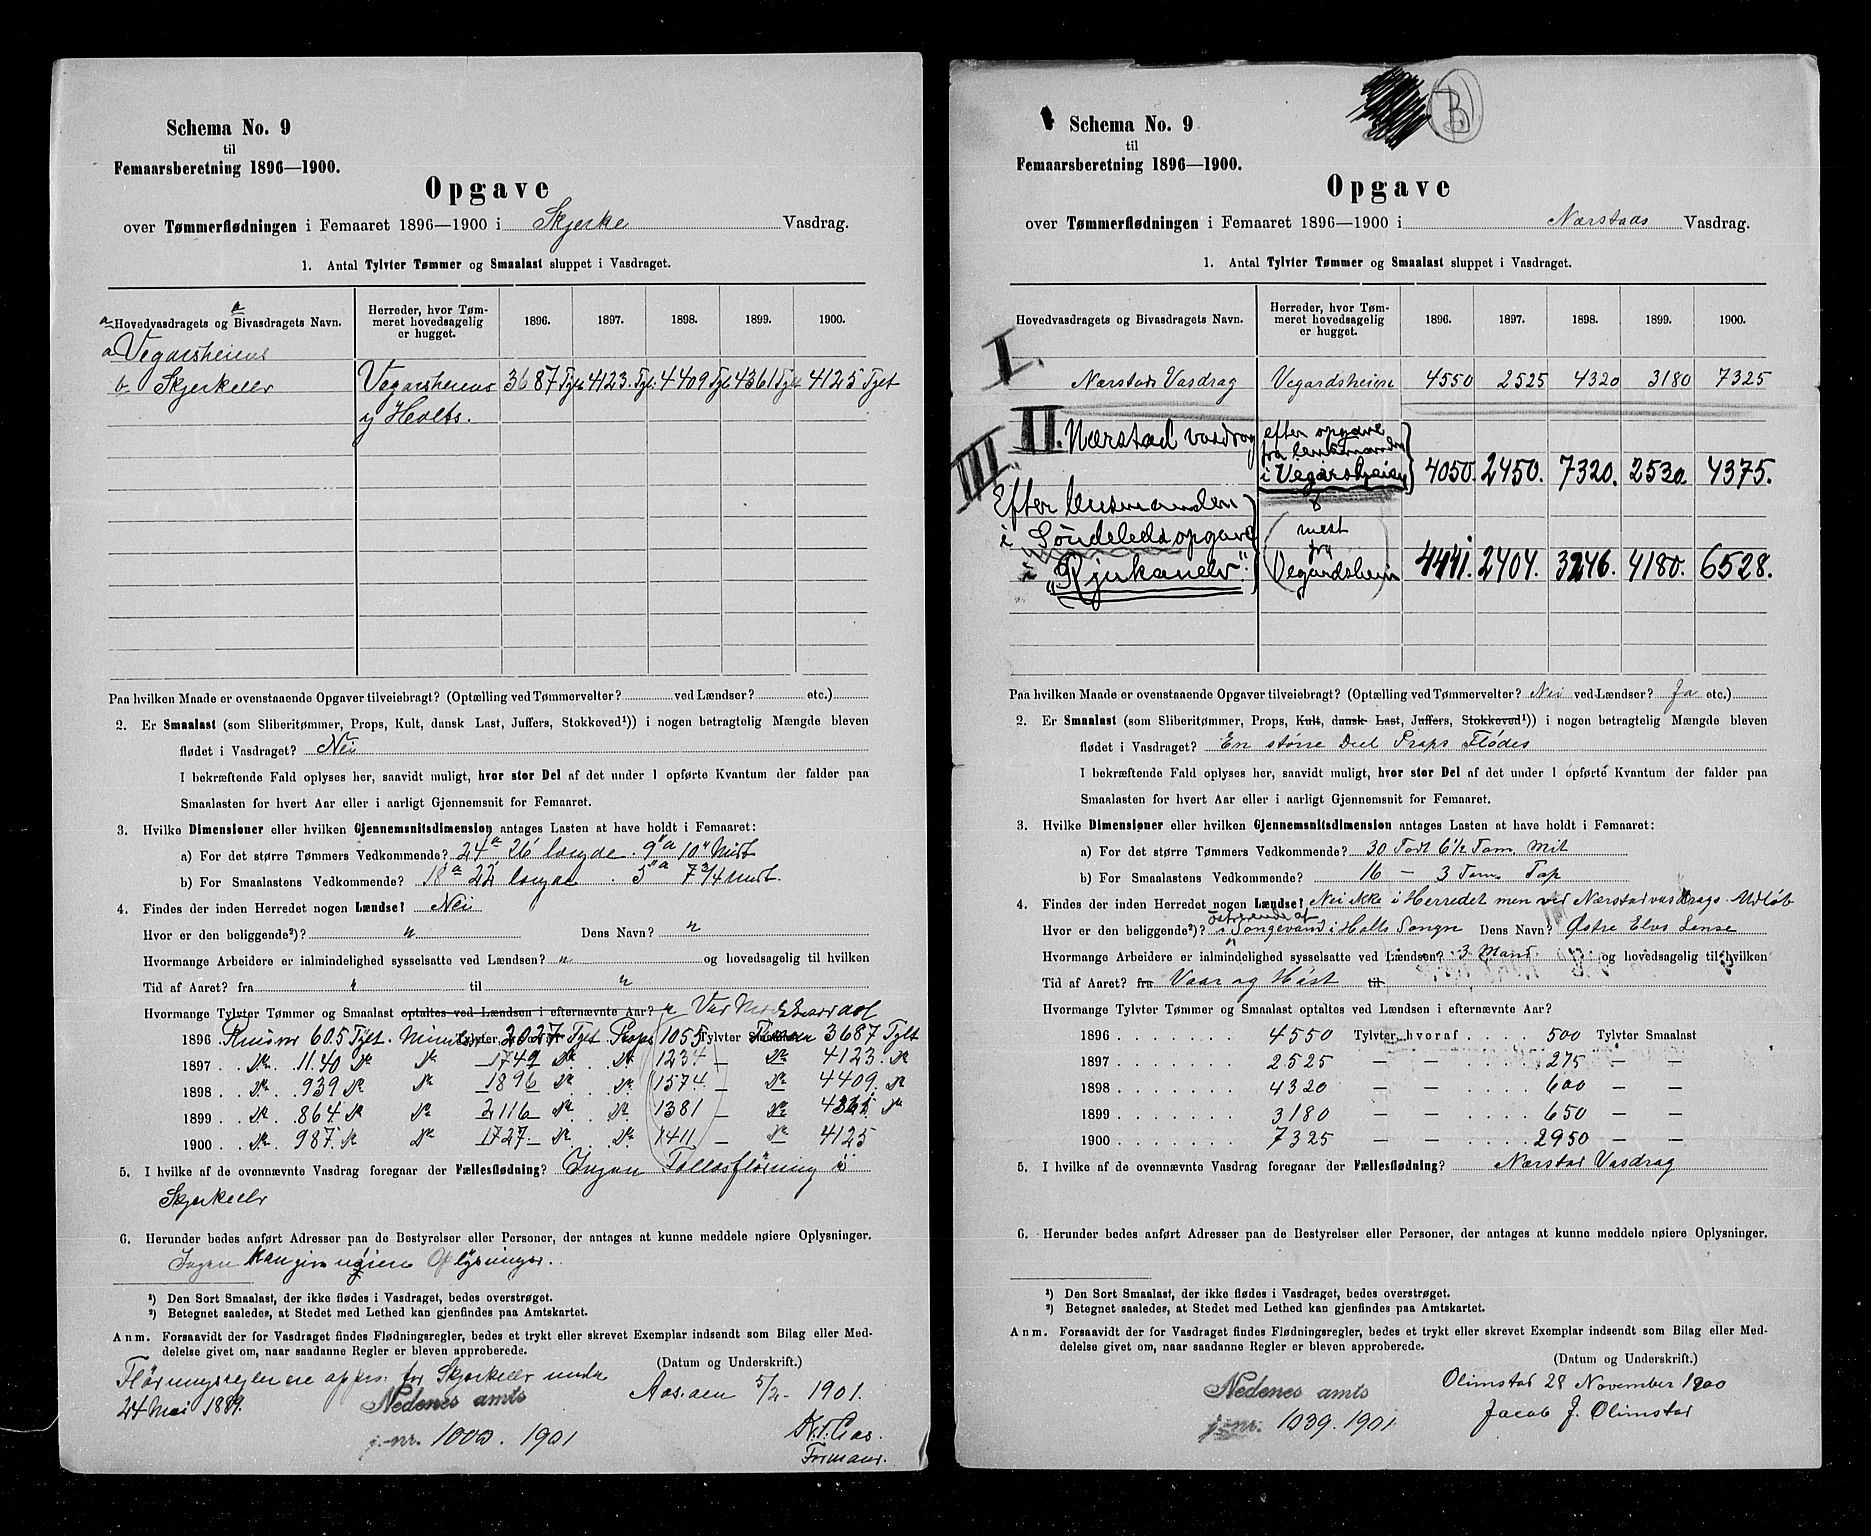 Schema No. 9
til
Femaarsberetning 1896—1900.
Opgave
over Tømmerflødningen i Femaaret 1896—1900 i Skjerke Vasdrag.
1. Antal Tylvter Tømmer og Smaalast sluppet i Vasdraget.
a Hovedvasdragets og a Bivasdragets Navn. Herreder, hvor Tømmeret hovedsagelig er hugget. 1896. 1897. 1898. 1899. 1900.
a Vegarsheiens
b Skjerkelv Vegarsheiens 3687 Tylt 4123 Tyl. 4409 Tyl 4361 Tylt 4125 Tylt
og Holts.
Paa hvilken Maade er ovenstaaende Opgaver tilveiebragt? (Optælling ved Tømmervelter? ved Lændser? etc.)
2. Er Smaalast (som Sliberitømmer, Props, Kult, dansk Last, Juffers, Stokkeved¹)) i nogen betragtelig Mængde bleven
flødet i Vasdraget? Nei
I bekræftende Fald oplyses her, saavidt muligt, hvor stor Del af det under 1 opførte Kvantum der falder paa
Smaalasten for hvert Aar eller i aarligt Gjennemsnit for Femaaret.
3. Hvilke Dimensioner eller hvilken Gjennemsnitsdimension antages Lasten at have holdt i Femaaret:
a) For det større Tømmers Vedkommende? 24 a 26 længde. 9" a 10" Midt
b) For Smaalastens Vedkommende? 18 a 22 længde. 5" a 7 3/4 Midt.
4. Findes der inden Herredet nogen Lændse? Nei
Hvor er den beliggende²)? " Dens Navn? "
Hvormange Arbeidere er ialmindelighed sysselsatte ved Lændsen? " og hovedsagelig til hvilken
Tid af Aaret? fra " til "
Hvormange Tylvter Tømmer og Smaalast optaltes ved Lændsen i efternævnte Aar?
1896 605 Tylt. 2027 Tylt Props 1055 Tylvter Smaalast 3687 Tylt
1897 . . Do. 1140 Do Do 1749 Do . . Do. 1234 — Do 4123. Do
1898 . . Do. 939 Do Do 1896 Do . . Do. 1574 — Do 4409. Do
1899 . . Do. 864. Do Do 2116 Do . . Do. 1381 — Do 4361 Do
1900 . . Do. 987. Do Do 1727 Do . . Do. 1411 — Do 4125
5. I hvilke af de ovennævnte Vasdrag foregaar der Fællesflødning? Ingen Fællesflødning i
Skjerkelv
6. Herunder bedes anført Adresser paa de Bestyrelser eller Personer, der antages at kunne meddele nøiere Oplysninger.
Ingen kan give nøiere Oplysninger.
¹) Den Sort Smaalast, der ikke flødes i Vasdraget, bedes overstrøget.
²) Betegnet saaledes, at Stedet med Lethed kan gjenfindes paa Amtskartet.
Anm. Forsaavidt der for Vasdraget findes Flødningsregler, bedes et trykt eller skrevet Exemplar indsendt som Bilag eller Meddelelse givet om, naar saadanne Regler er bleven approberede.
(Datum og Underskrift.)
Flødningsregler ere appr. for Skjerkelv under
24 Mai 1889.
Nedenes amts
j.-nr. 1000. 1901
5/2 - 1901.
Formand.
Schema No. 9
til
Femaarsberetning 1896—1900.
B
Opgave
over Tømmerflødningen i Femaaret 1896—1900 i Nærstads Vasdrag.
1. Antal Tylvter Tømmer og Smaalast sluppet i Vasdraget.
Hovedvasdragets og Bivasdragets Navn. Herreder, hvor Tømmeret hovedsagelig er hugget. 1896. 1897. 1898. 1899. 1900.
I. Nærstads Vasdrag Vegardsheien 4550 2525 4320 3180 7325
II. Nærstad vasdrag efter opgave fra lensmanden i Vegarsheien 4050. 2450. 7320. 2530 4375.
III Efter lensmanden i Søndeleds opgave "Rjukanelv". mest fra Vegardsheien 4441. 2404. 3246. 4180. 6528.
Paa hvilken Maade er ovenstaaende Opgaver tilveiebragt? (Optælling ved Tømmervelter? Nei ved Lændser? Ja etc.)
2. Er Smaalast (som Sliberitømmer, Props, Kult, dansk Last, Juffers, Stokkeved¹)) i nogen betragtelig Mængde bleven
flødet i Vasdraget? En større Deel Props Flødes
I bekræftende Fald oplyses her, saavidt muligt, hvor stor Del af det under 1 opførte Kvantum der falder paa
Smaalasten for hvert Aar eller i aarligt Gjennemsnit for Femaaret.
3. Hvilke Dimensioner eller hvilken Gjennemsnitsdimension antages Lasten at have holdt i Femaaret:
a) For det større Tømmers Vedkommende? 30 Fodt 6½ Tom. Mit
b) For Smaalastens Vedkommende? 16 — 3 Tom. Top
4. Findes der inden Herredet nogen Lændse? Nei ikke i Herredet men ved Nærstadvasdrags Udløb
Hvor er den beliggende²)? østre ende af i Songevand i Holts Songn Dens Navn? Østre Elvs Lense
Hvormange Arbeidere er ialmindelighed sysselsatte ved Lændsen? 3 Mand. og hovedsagelig til hvilken
Tid af Aaret? fra Vaar og Høst til
Hvormange Tylvter Tømmer og Smaalast optaltes ved Lændsen i efternævnte Aar:
1896 4550 Tylvter hvoraf 500 Tylvter Smaalast
1897 2525 — — 275 — —
1898 4320 — — 600 — —
1899 3180 — — 650 — —
1900 7325 — — 2950 — —
5. I hvilke af de ovennævnte Vasdrag foregaar der Fællesflødning? Nærstad Vasdrag
6. Herunder bedes anført Adresser paa de Bestyrelser eller Personer, der antages at kunne meddele nøiere Oplysninger.
¹) Den Sort Smaalast, der ikke flødes i Vasdraget, bedes overstrøget.
²) Betegnet saaledes, at Stedet med Lethed kan gjenfindes paa Amtskartet.
Anm. Forsaavidt der for Vasdraget findes Flødningsregler, bedes et trykt eller skrevet Exemplar indsendt som Bilag eller Meddelelse givet om, naar saadanne Regler er bleven approberede.
(Datum og Underskrift.)
Nedenes amts
j.-nr. 1039. 1901
Olimstad 28 November 1900
Jacob J. Olimstad